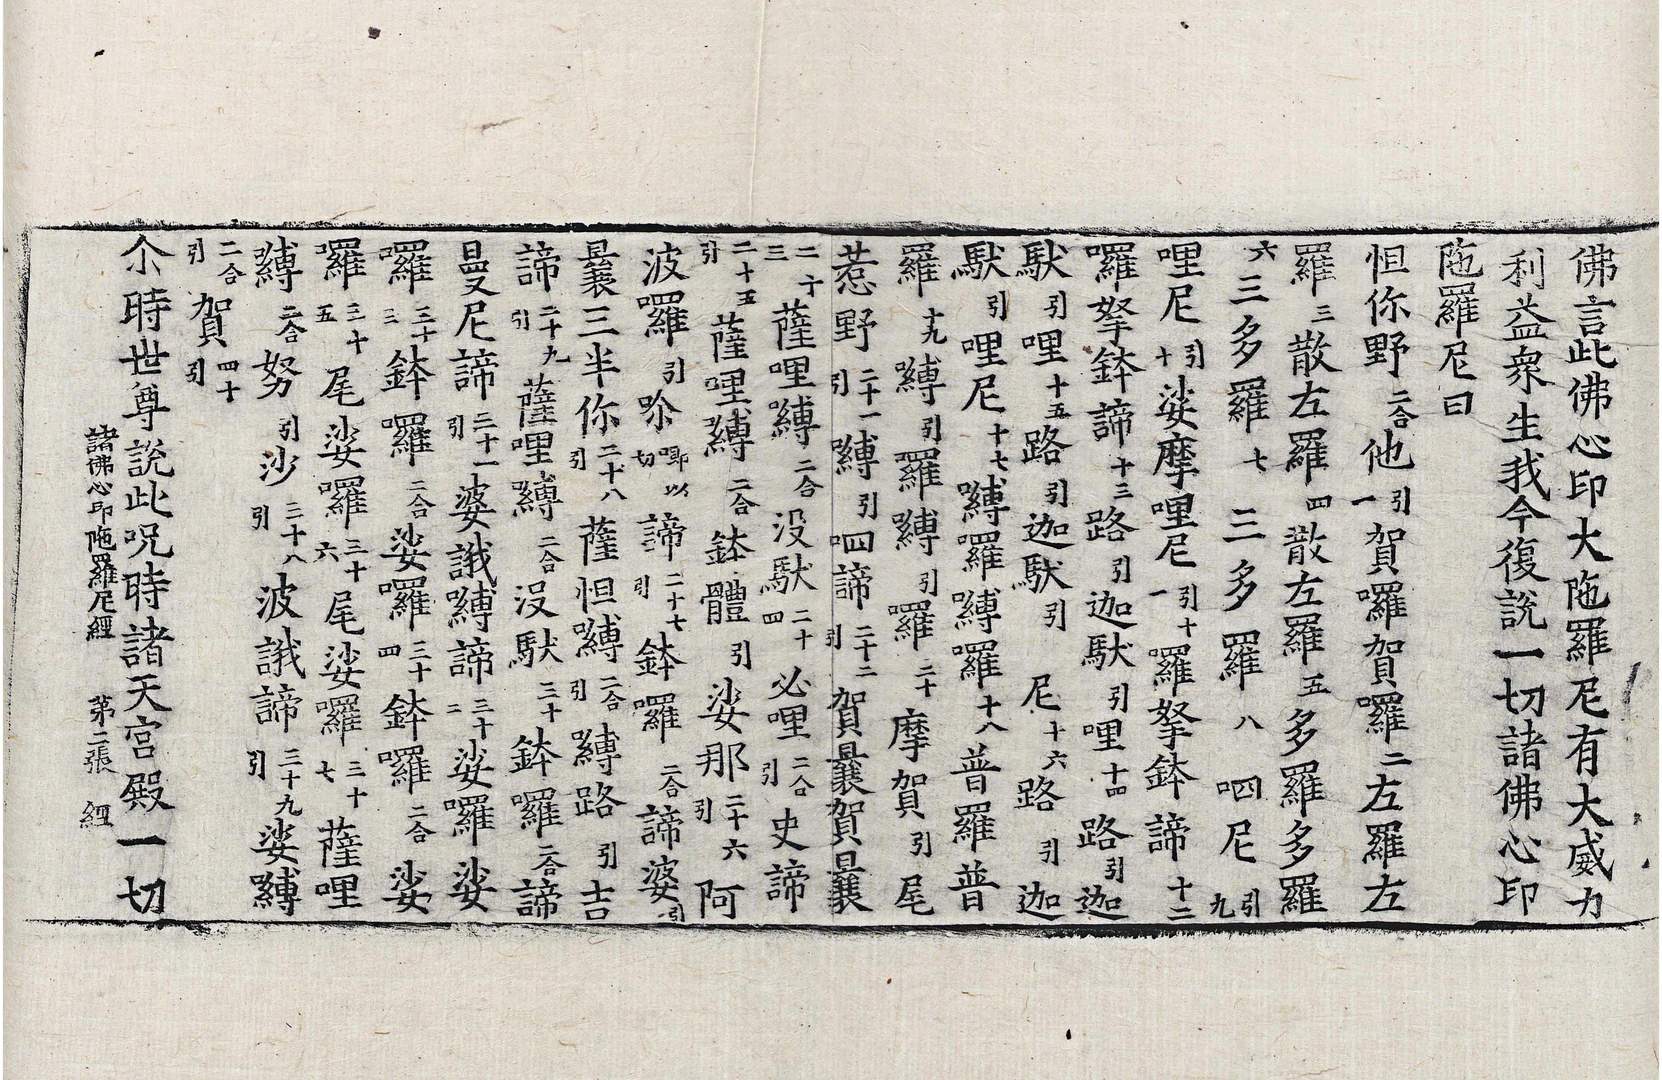 佛言此佛心印大陁羅尼有大威力
利益衆生我今復說一切諸佛心印
陁羅尼曰
怛你野二合他引一賀囉賀囉二左羅左
羅三散左羅四散左羅五多羅多羅
六三多羅七三多羅八呬尼引九
哩尼引十娑摩哩尼引十一羅拏鉢諦十二
囉拏鉢諦十三路引迦馱引哩十四路引迦
馱引哩十五路引迦馱引尼十六路引迦
馱引哩尼十七嚩囉嚩囉十八普羅普
羅十九嚩引羅嚩引囉二十摩賀引尾
惹野引二十一嚩引呬諦引二十二賀曩賀曩
二十三薩哩嚩二合没馱二十四必哩二合引史諦
引二十五薩哩嚩二合鉢體引娑那引二十六阿
波囉引吤唧以切諦引二十七鉢囉二合諦婆引
曩三半你引二十八薩怛嚩二合引嚩路引吉
諦引二十九薩哩嚩二合没馱三十鉢囉二合諦
曼尼諦引三十一婆誐嚩諦三十二娑囉娑
囉三十三鉢囉二合娑囉三十四鉢囉二合娑
囉三十五尾娑囉三十六尾娑囉三十七薩哩
嚩二合努引沙引三十八波誐諦引三十九娑嚩
二合引賀引四十
尒時世尊說此呪時諸天宮殿一切
諸佛心印陁羅尼經　第二張　經